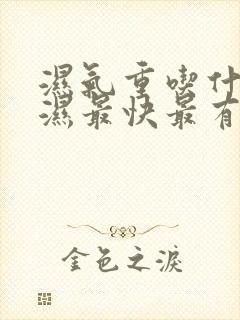 濕氣重喫什
濕最快最有
金色之淚